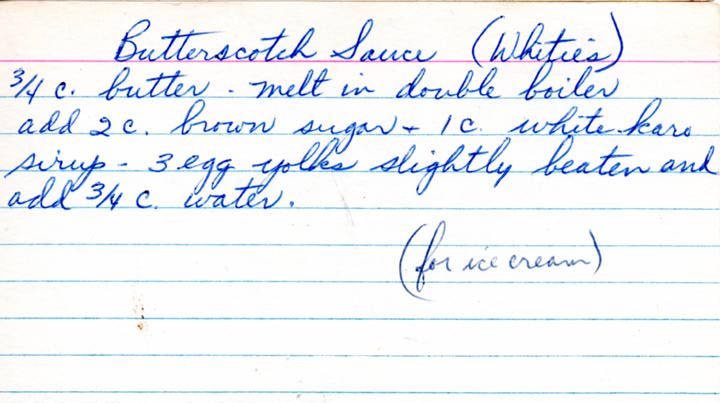 Butterscotch Sauce (Whitie's)
3/4 c. butter - melt in double boiler
add 2 c. brown sugar + 1 c. white karo
sirup - 3 egg yolks slightly beaten and
add 3/4 c. water.
(for ice cream)